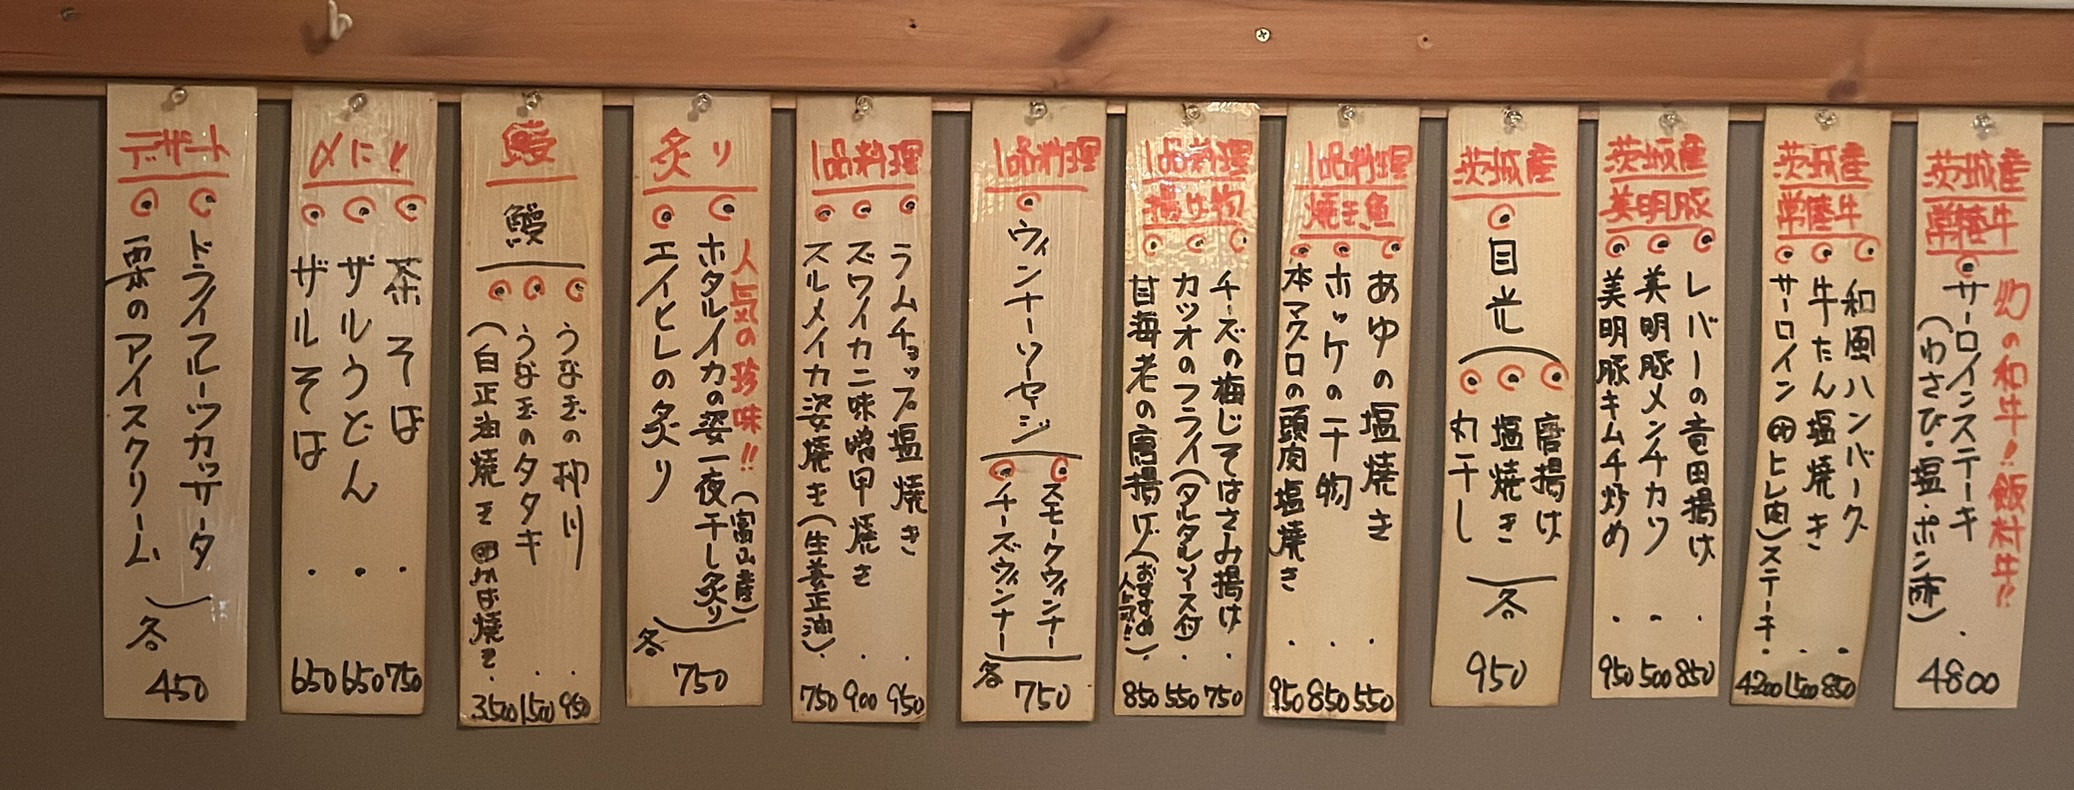 茨城産
常陸牛
幻の和牛!!飯村牛!!
サーロインステーキ
(わさび・塩・ポン酢)
4800
茨城産
常陸牛
和風ハンバーグ
850
牛たん塩焼き
1500
サーロイン(ヒレ肉)ステーキ
4200
茨城産
美明豚
レバーの竜田揚げ
850
美明豚メンチカツ
500
美明豚キムチ炒め
950
茨城産
目光
唐揚げ
塩焼き
丸干し
各
950
1品料理
焼き魚
あゆの塩焼き
550
ホッケの干物
850
本マグロの頭肉塩焼き
950
1品料理
揚げ物
チーズの梅じそはさみ揚げ
750
カツオのフライ(タルタルソース付)
550
甘海老の唐揚げ(おすすめ)
人気!!
850
1品料理
ウィンナーソーセージ
スモークウィンナー
チーズウィンナー
各
750
1品料理
ラムチョップ塩焼き
950
ズワイカニ味噌甲焼き
900
スルメイカ姿焼き(生姜正油)
750
炙り
人気の珍味!!
ホタルイカの姿一夜干し炙り
(富山産)
エイヒレの炙り
各
750
鰻
鰻
うな玉の柳川
950
うな玉のタタキ
1500
(白正油焼き
かば焼き
3500
〆に
茶そば
750
ザルうどん
650
ザルそば
650
デザート
ドライフルーツカッサータ
栗のアイスクリーム
各
450